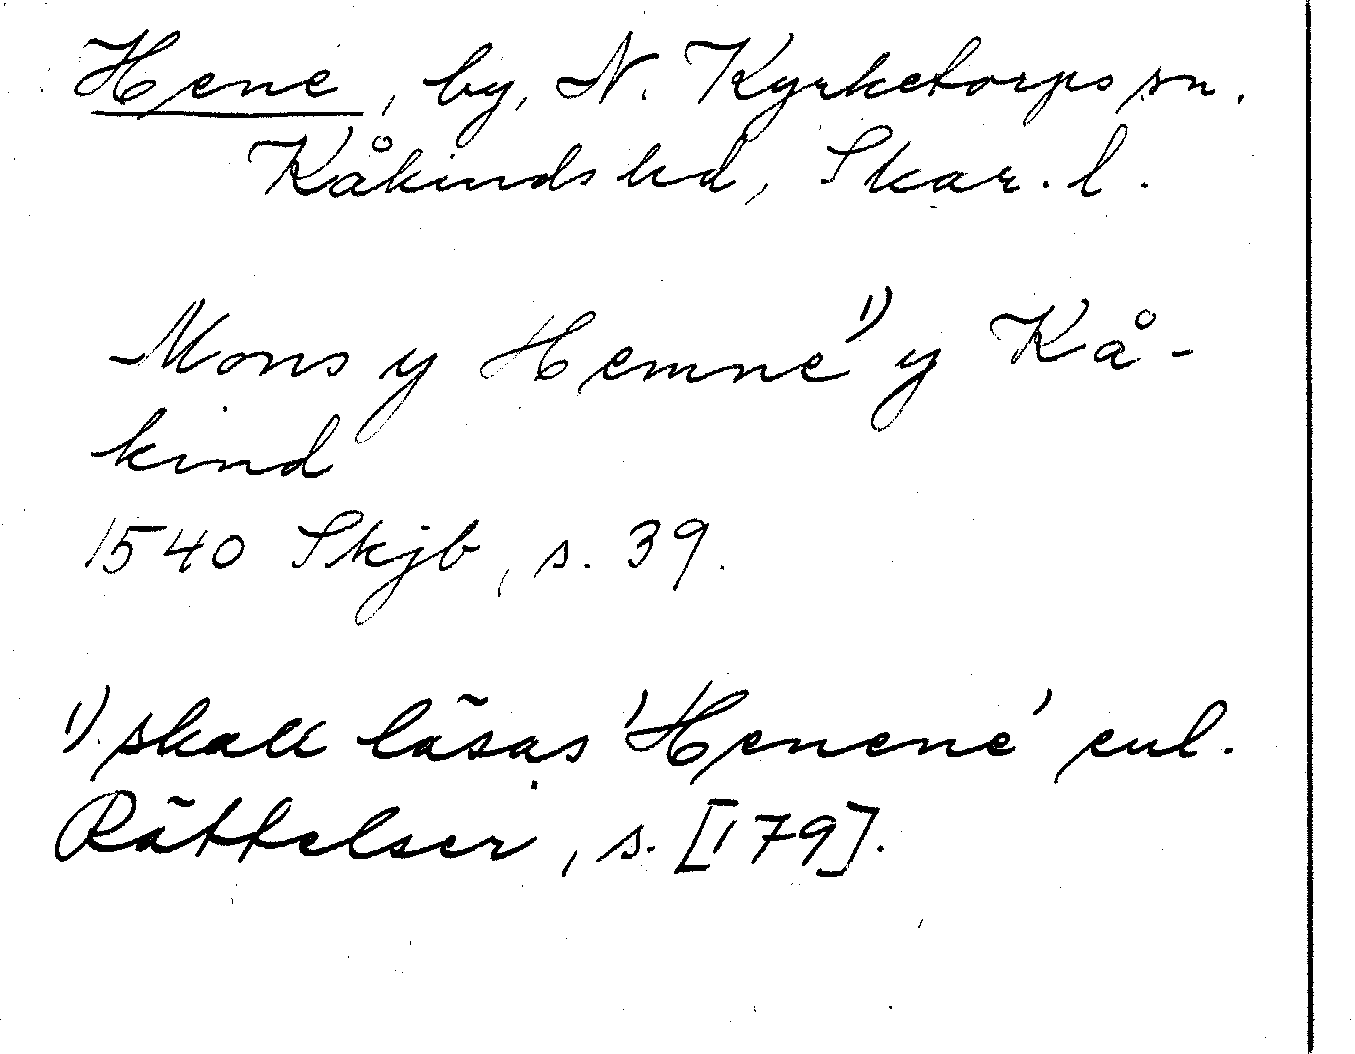 Hene, by, N. Kyrketorps sn.
Kåkinds hd, Skar. l.
Mons y Hemne¹⁾ y Kå-
kind
1540 Skjb, s. 39.
¹⁾ skall läsas 'Henene' enl.
Rättelser, s. [179].